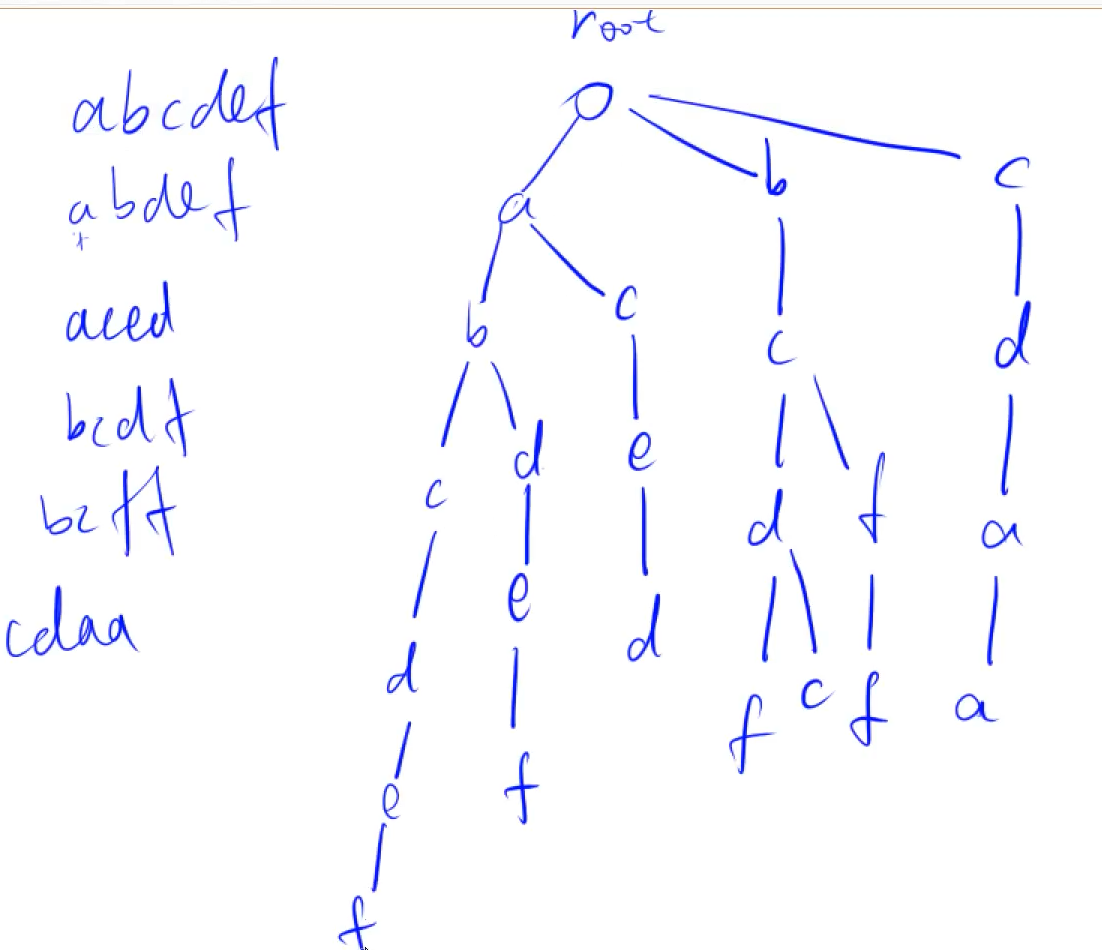 root
abcdef
abdef
aced
bcdf
bcff
cdaa
O
a b c
b c c d
c d e d f a
d e d f c f a
e f
f